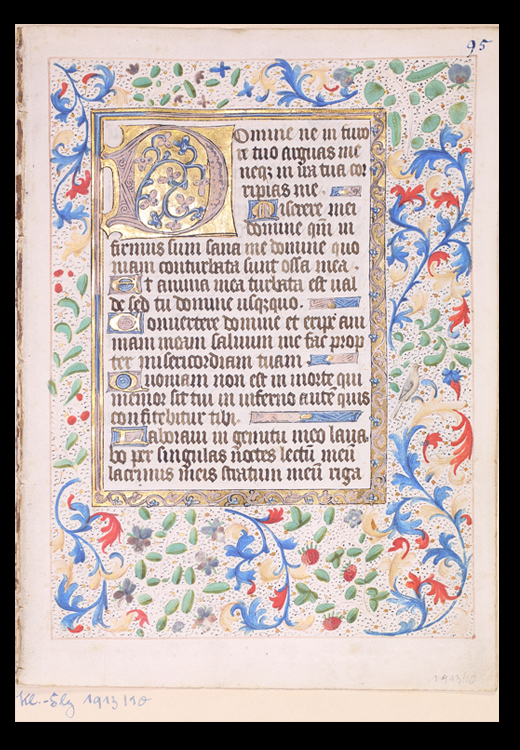 95
Domine ne in furo
re tuo arguas me
neqz in ira tua cor
ripias me .
Miserere mei
domine qm̄ in
firmus sum sana me domine quo
niam conturbata sunt ossa mea .
Et anima mea turbata est val
de sed tu domine usqzquo .
Convertere domine et eripe ani
mam meam salvum me fac prop
ter misericordiam tuam .
Quoniam non est in morte qui
memor sit tui in inferno autē quis
confitebitur tibi .
Laboraui in gemitu meo laua
bo per singulas noctes lectū meū
lacrimis meis stratum meū riga
1913/10
Kl.-Slg 1913/10